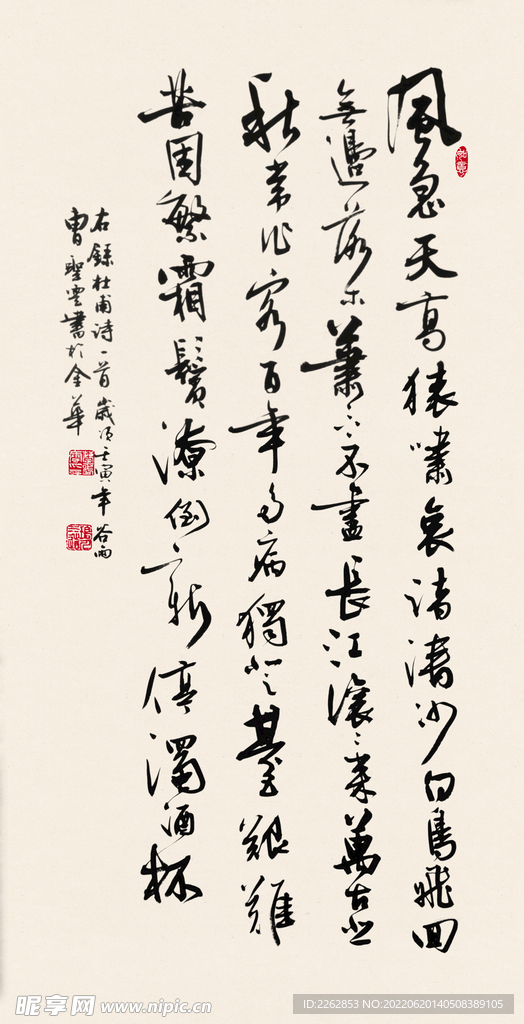 風急天高猿嘯哀渚清沙白鳥飛回
無邊落木蕭〻下不盡長江滾〻來萬古悲
秋常作客百年多病獨登臺艱難
苦繁霜鬢潦倒新停濁酒杯
右錄杜甫诗一首歲次壬寅年谷雨
曹聖雲書於金華
昵享网 www.nipic.cn
ID:2262853 NO:20220620140508389105